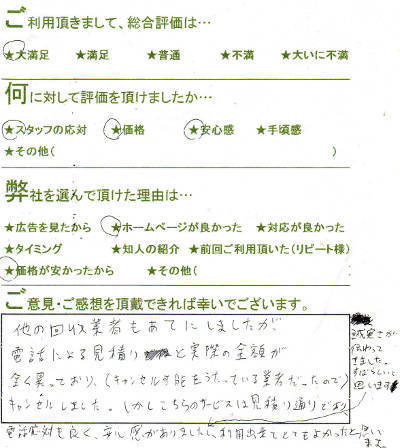 ご利用頂きまして、総合評価は…
★大満足 ★満足 ★普通 ★不満 ★大いに不満
何に対して評価を頂けましたか…
★スタッフの応対 ★価格 ★安心感 ★手頃感
★その他( )
弊社を選んで頂けた理由は…
★広告を見たから ★ホームページが良かった ★対応が良かった
★タイミング ★知人の紹介 ★前回ご利用頂いた(リピート様)
★価格が安かったから ★その他(
ご意見・ご感想を頂戴できれば幸いでございます。
他の回収業者もあてにしましたが
電話による見積り と実際の金額が
全く異っており、(キャンセル可能をうたっている業者だったので)
キャンセルしました。しかしこちらのサービスは見積り通りであり
電話応対も良く、安心感がありましたし、利用出来てとてもよかったと思い
ます。
誠実さが
伝わって
きました。
すばらしいと
思います